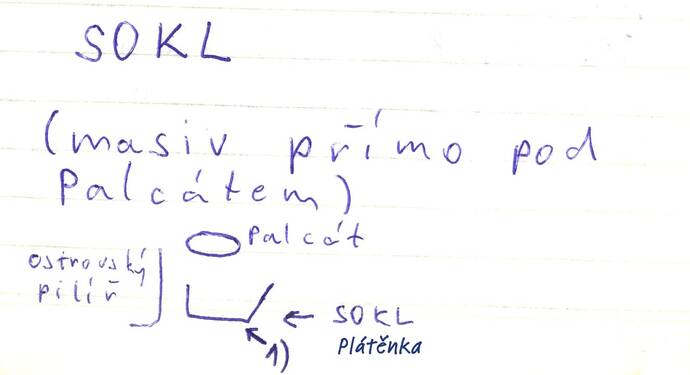 SOKL
(masiv přímo pod
Palcátem)
Palcát
ostrovský
pilíř
SOKL
Plátěnka
1)